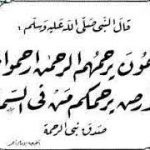 قَالَ النَّبِي صَلَّى اللهُ عَلَيْهِ وَسَلَّم:
مُونَ يَرحمُهم الرحمٰن ارحموا
رض يرحمكم مَن فى السم
صدق نبى الرحمة